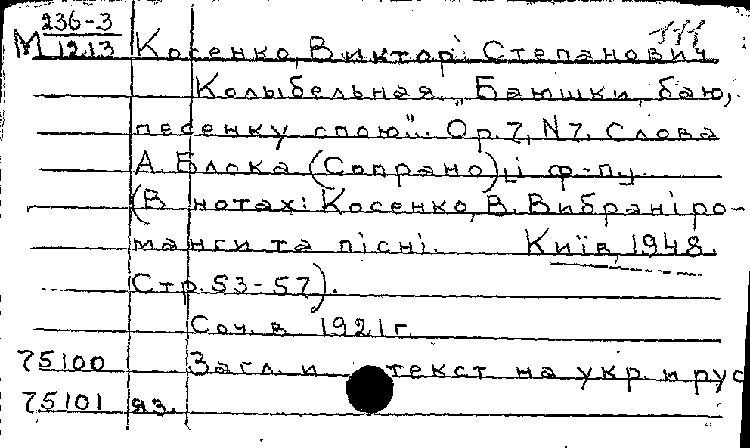 236-3
М 1213 Косенко, Виктор Степанович
Колыбельная. „Баюшки, баю,
песенку спою". Ор. 7, N 7. Слова
А. Блока (Сопрано) і ф-п.
(В нотах: Косенко, В. Вибрані ро-
манси та пісні. Київ, 1948.
Стр. 53-57).
Соч. в 1921 г.
75100 Загл. и текст на укр. и рус
75101 яз.